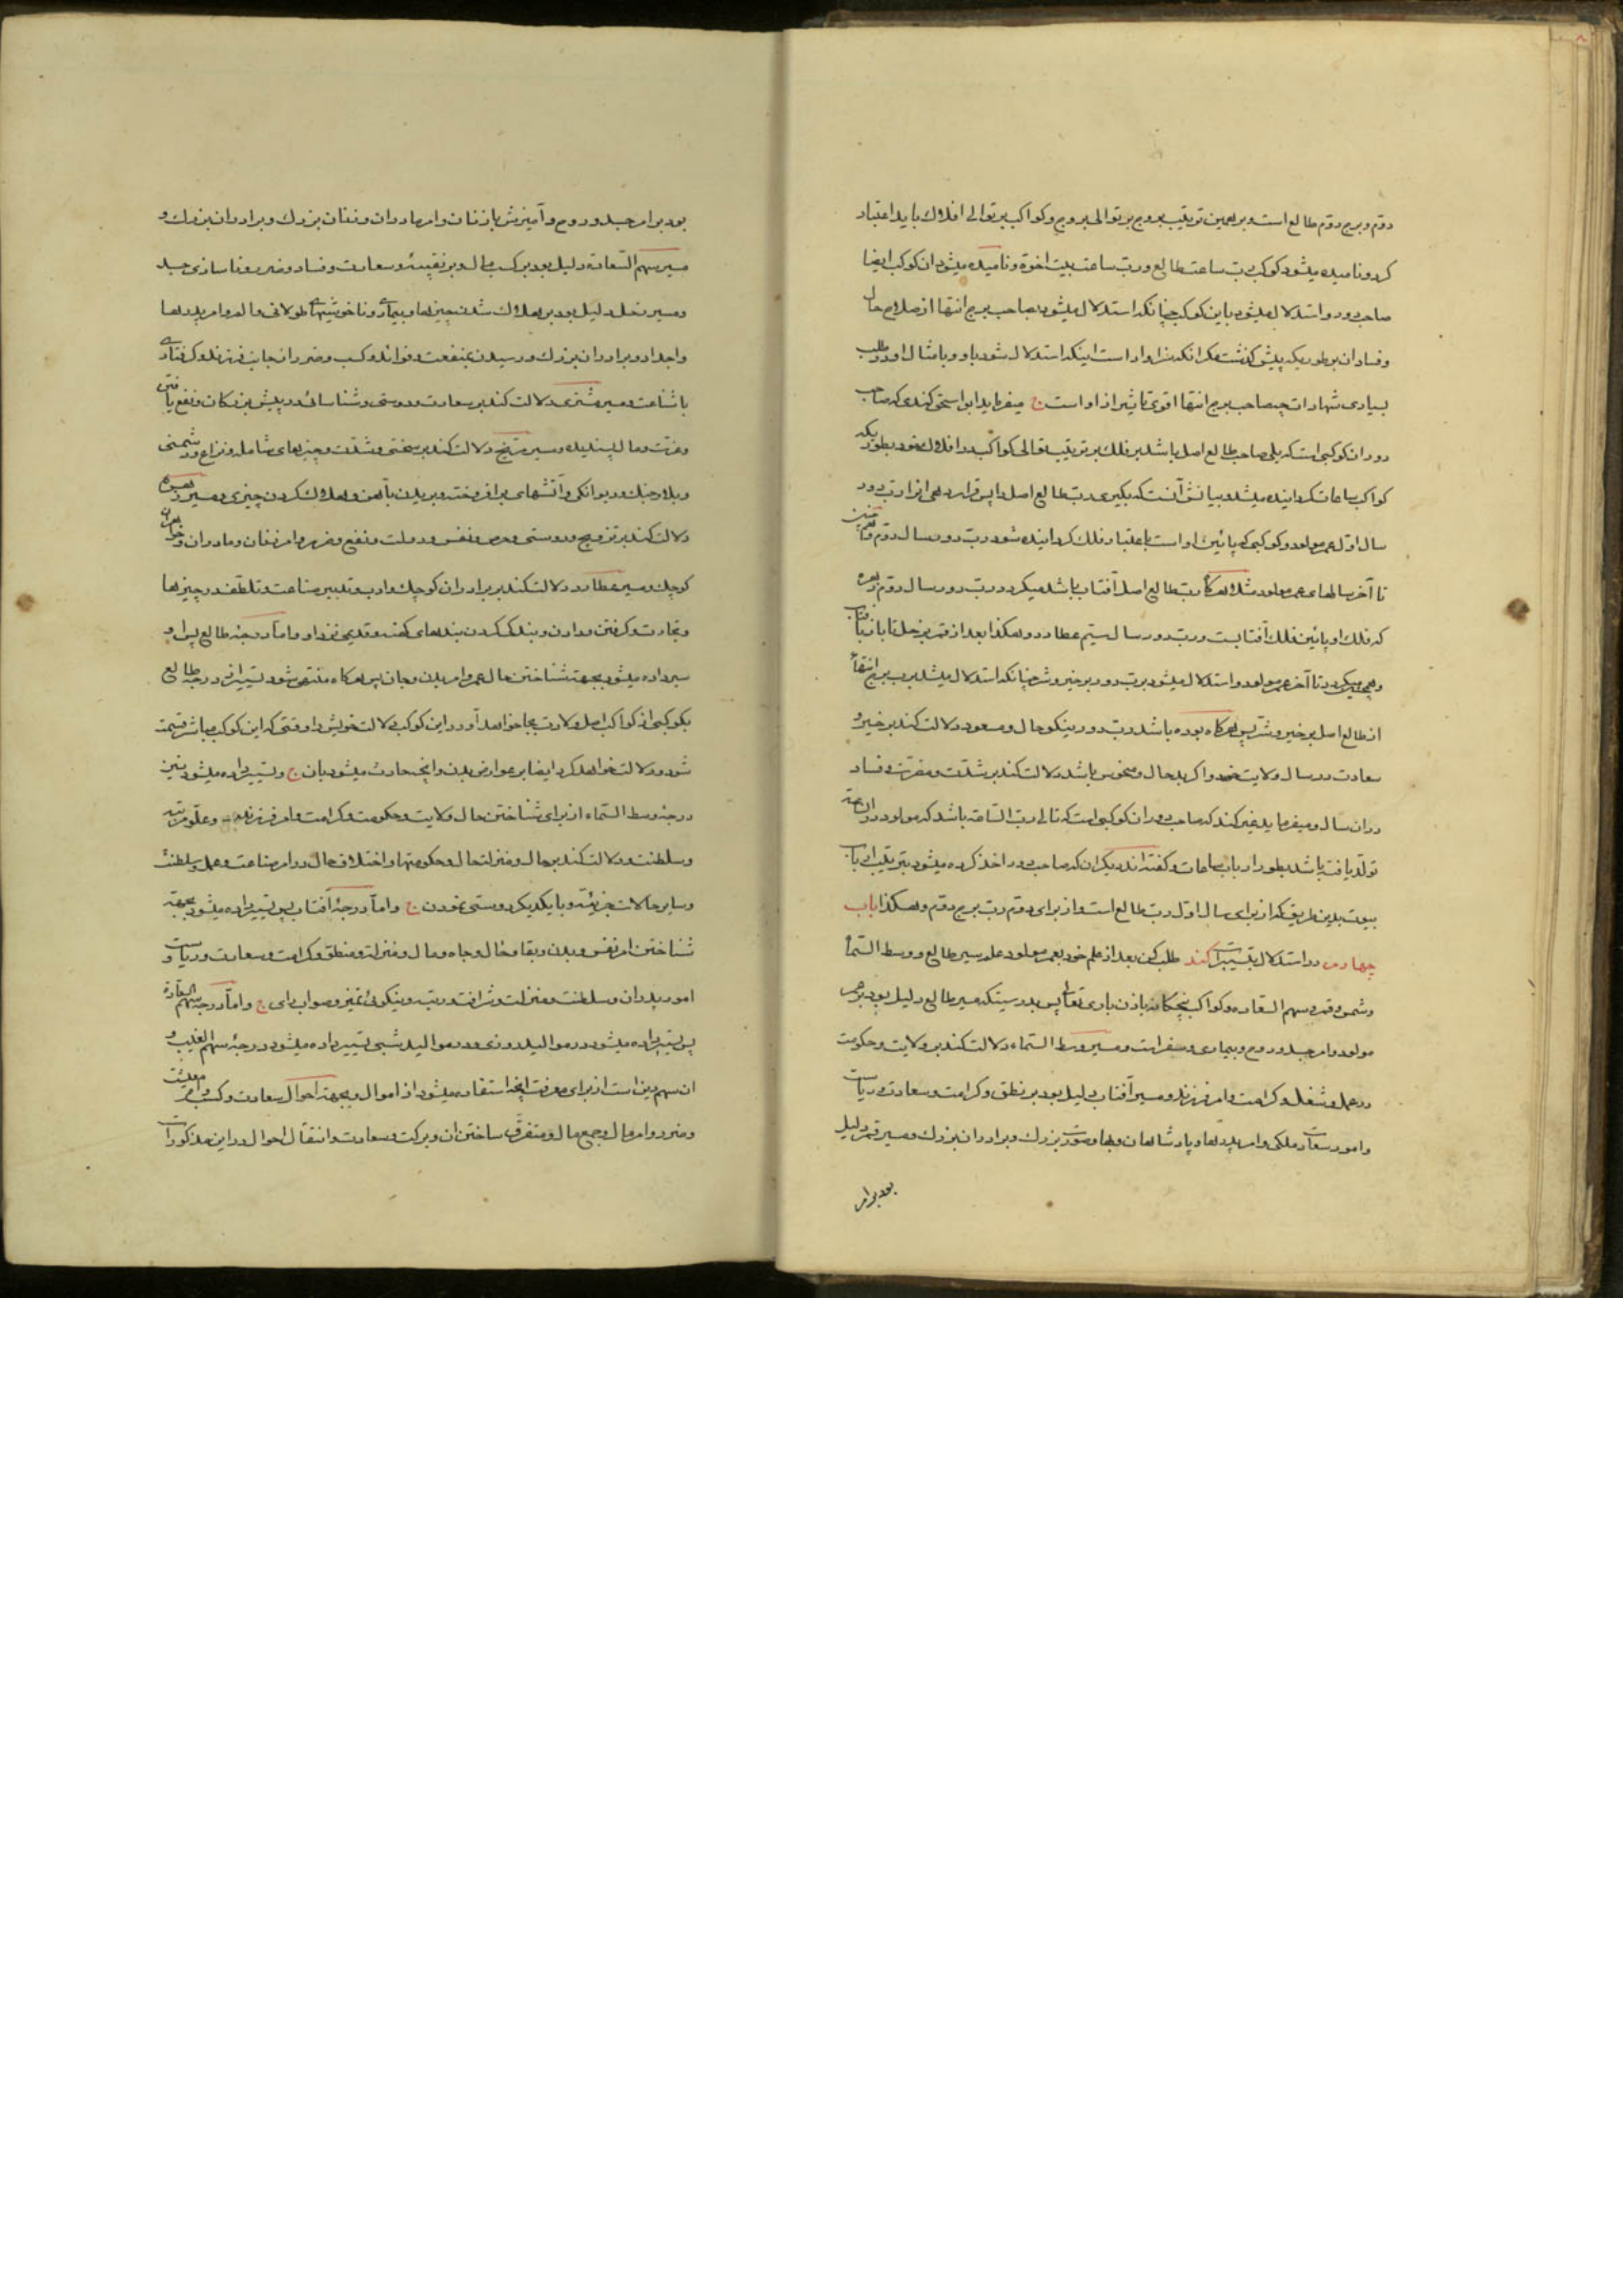 دوّم و برج دوّم طالع است و بر همین ترتیب بروج بر توالی بروج و کواکب بر توالی افلاک باید اعتبار
کرد و نامیده میشود کوکب ربّ ساعت طالع و ربّ ساعت بیت اخوة و نامیده میشود ان کوکب ایضا
صاحب دور و استدلال میشود باین کوکب چنانکه استدلال میشود بصاحب برج انتها از صلاح حال
و فساد ان بر طوریکه پیش گذشت مگر انکه سزاوار است اینکه استدلال شود باو و بامثال او در طلب
بسیاری شهادات چه صاحب برج انتها اقوی تاثیرا از او است میفرماید ابو کندی که صاحب
دور ان کوکبی است که یلی صاحب طالع اصل باشد بر فلک بر ترتیب توالی کواکب در افلاک خود بطوریکه
کواکب ساعات گردانیده میشد و بیانش آنست که بگیری ربّ طالع اصل را پس قرار دهی انرا ربّ دور
سال اوّل عمر مولود و کوکبی که پائین او است باعتبار فلک گردانیده شود ربّ دور سال دوّم و همچنین
تا آخر سالهای عمر مولود مثلا هرگاه ربّ طالع اصل آفتاب باشد میگردد ربّ دور سال دوّم زهره
که فلک او پائین فلک آفتابست و ربّ دور سال سیّم عطارد و هکذا بعد از قمر زحل تا باز بآفتاب
و همی میگردد تا آخر عمر مولود و استدلال میشود بربّ دور بر خیر و شر چنانکه استدلال میشد بربّ برج انتها
از طالع اصل بر خیر و شرّ پس هرگاه بوده باشد ربّ دور نیکو حال و مسعود دلالت کند بر خیر و
سعادت در سال ولایت خود و اگر بد حال و منحوس باشد دلالت کند بر شدّت و مضرّت و فساد
در ان سال و میفرماید غیر کندی که صاحب دور ان کوکبی است که تالی ربّ السّاعة باشد که مولود در ان ساعة
تولّد یافته باشد بطور ارباب ساعات و گفته‌اند دیگران که صاحب دور اخذ کرده میشود بترتیب ارباب
بیوت بدین طریق که از برای سال اوّل ربّ طالع است و از برای دوّم ربّ برج دوّم و هکذا باب
چهارم در استدلال بتسییرات کند طلب کن بعد از علم خود بعمر مولود علم سیر طالع و وسط السّماء
و شمس و قمر و سهم السّعاده و کواکب پنجگانه باذن باری تعالی پس بدرستیکه مسیر طالع دلیل بود بر عمر
مولود و امر جسد و روح و بیماری و سفر است و مسیر وسط السّماء دلالت کند بر ولایت و حکومت
در عمل و شغل و کرامت و امر فرزند و مسیر آفتاب دلیل بود بر نطق و کرامت و سعادت و ریاست
و امور سعادت ملکی و امر پدرها و پادشاهان و بزرک و برادران بزرک و مسیر قمر دلیل
بود بر امر
بود بر امر جسد و روح و آمیزش با زنان و امر مادران و زنان بزرک و برادران بزرک و
مسیر سهم السّعادة دلیل بود بر کسب مال و سعادت و فساد و ضرر و ناسازی جسد
و مسیر زحل دلیل بود بر هلاک شدن چیزها و بیماری و ناخوشیهای طولانی و الم و امر پدرها
و اجداد و برادران بزرک و رسیدن بمنفعت و فوائد و کسب و ضرر از جانب فرزند و گرفتاری
با شناعت و مسیر مشتری دلالت کند بر سعادت و دوستی و شناسائی در پیش بزرکان و نفع یافتن
و عزّت و مال پسندیده و مسیر مرّیخ دلالت کند بر سختی و شدّت و چیزهای و نزاع و دشمنی
و بلا و جنک و دیوانکی و آتشهای برافروخته و بریدن بآهن و هلاک کردن چیزی و مسیر زهره
دلالت کند بر تزویج و دوستی و حرص و نفس و دولت و نفع و ضرر و امر زنان و مادران و خواهران
کوچک و مسیر عطارد دلالت کند بر برادران کوچک و ادب و تدبیر صناعت و تلطّف در چیزها
و تجارت و گرفتن و دادن و بندگی کردن بندهای کهنه و قدیمی نزد او و امّا درجهٔ طالع پس او
سیر داده میشود بجهت شناختن حال عمر و امر بدن و جان پس هرگاه منتهی شود تسییر از درجهٔ طالع
بکوکبی از کواکب اصل ولادت بجا خواهد آورد این کوکب دلالت خویش را وقتی که این کوکب مباشر قسمت
شود و دلالت خواهد کرد ایضا بر عوارض بدن و انچه حادث میشود بان و تسییر داده میشود نیز
درجهٔ وسط السّماء از برای شناختن حال ولایت و حکومت و کرامت و امر فرزند و علوّ مرتبه
و سلطنت و دلالت کند بر حال و منزلت حال و حکومتها و اختلاف حال در امر صناعت و عمل و سلطنت
و سایر حالات جزئیّه و با یکدیکر دوستی نمودن و امّا درجهٔ آفتاب پس تسییر داده میشود بجهة
شناختن امر نفس و بدن و بقا و حال و جاه و مال و منزلة و منطق و کرامت و سعادت و ریاست و
امور پدران و سلطنت و منزلت و شرافت و رتبه و نیکوئی تمیز و صواب رای و امّا درجهٔ سهم السّعادة
پس تسییر داده میشود در موالید روزی و در موالید شبی تسییر داده میشود درجهٔ سهم الغیب و
ان سهم دین است از برای معرفت انچه استفاده میشود از اموال و بجهة احوال سعادت و کسب و امر معیشت
و ضرر و امر مال و جمع مال و متفرّق ساختن ان و برکت و سعادت و انتقال احوال در این مذکورات